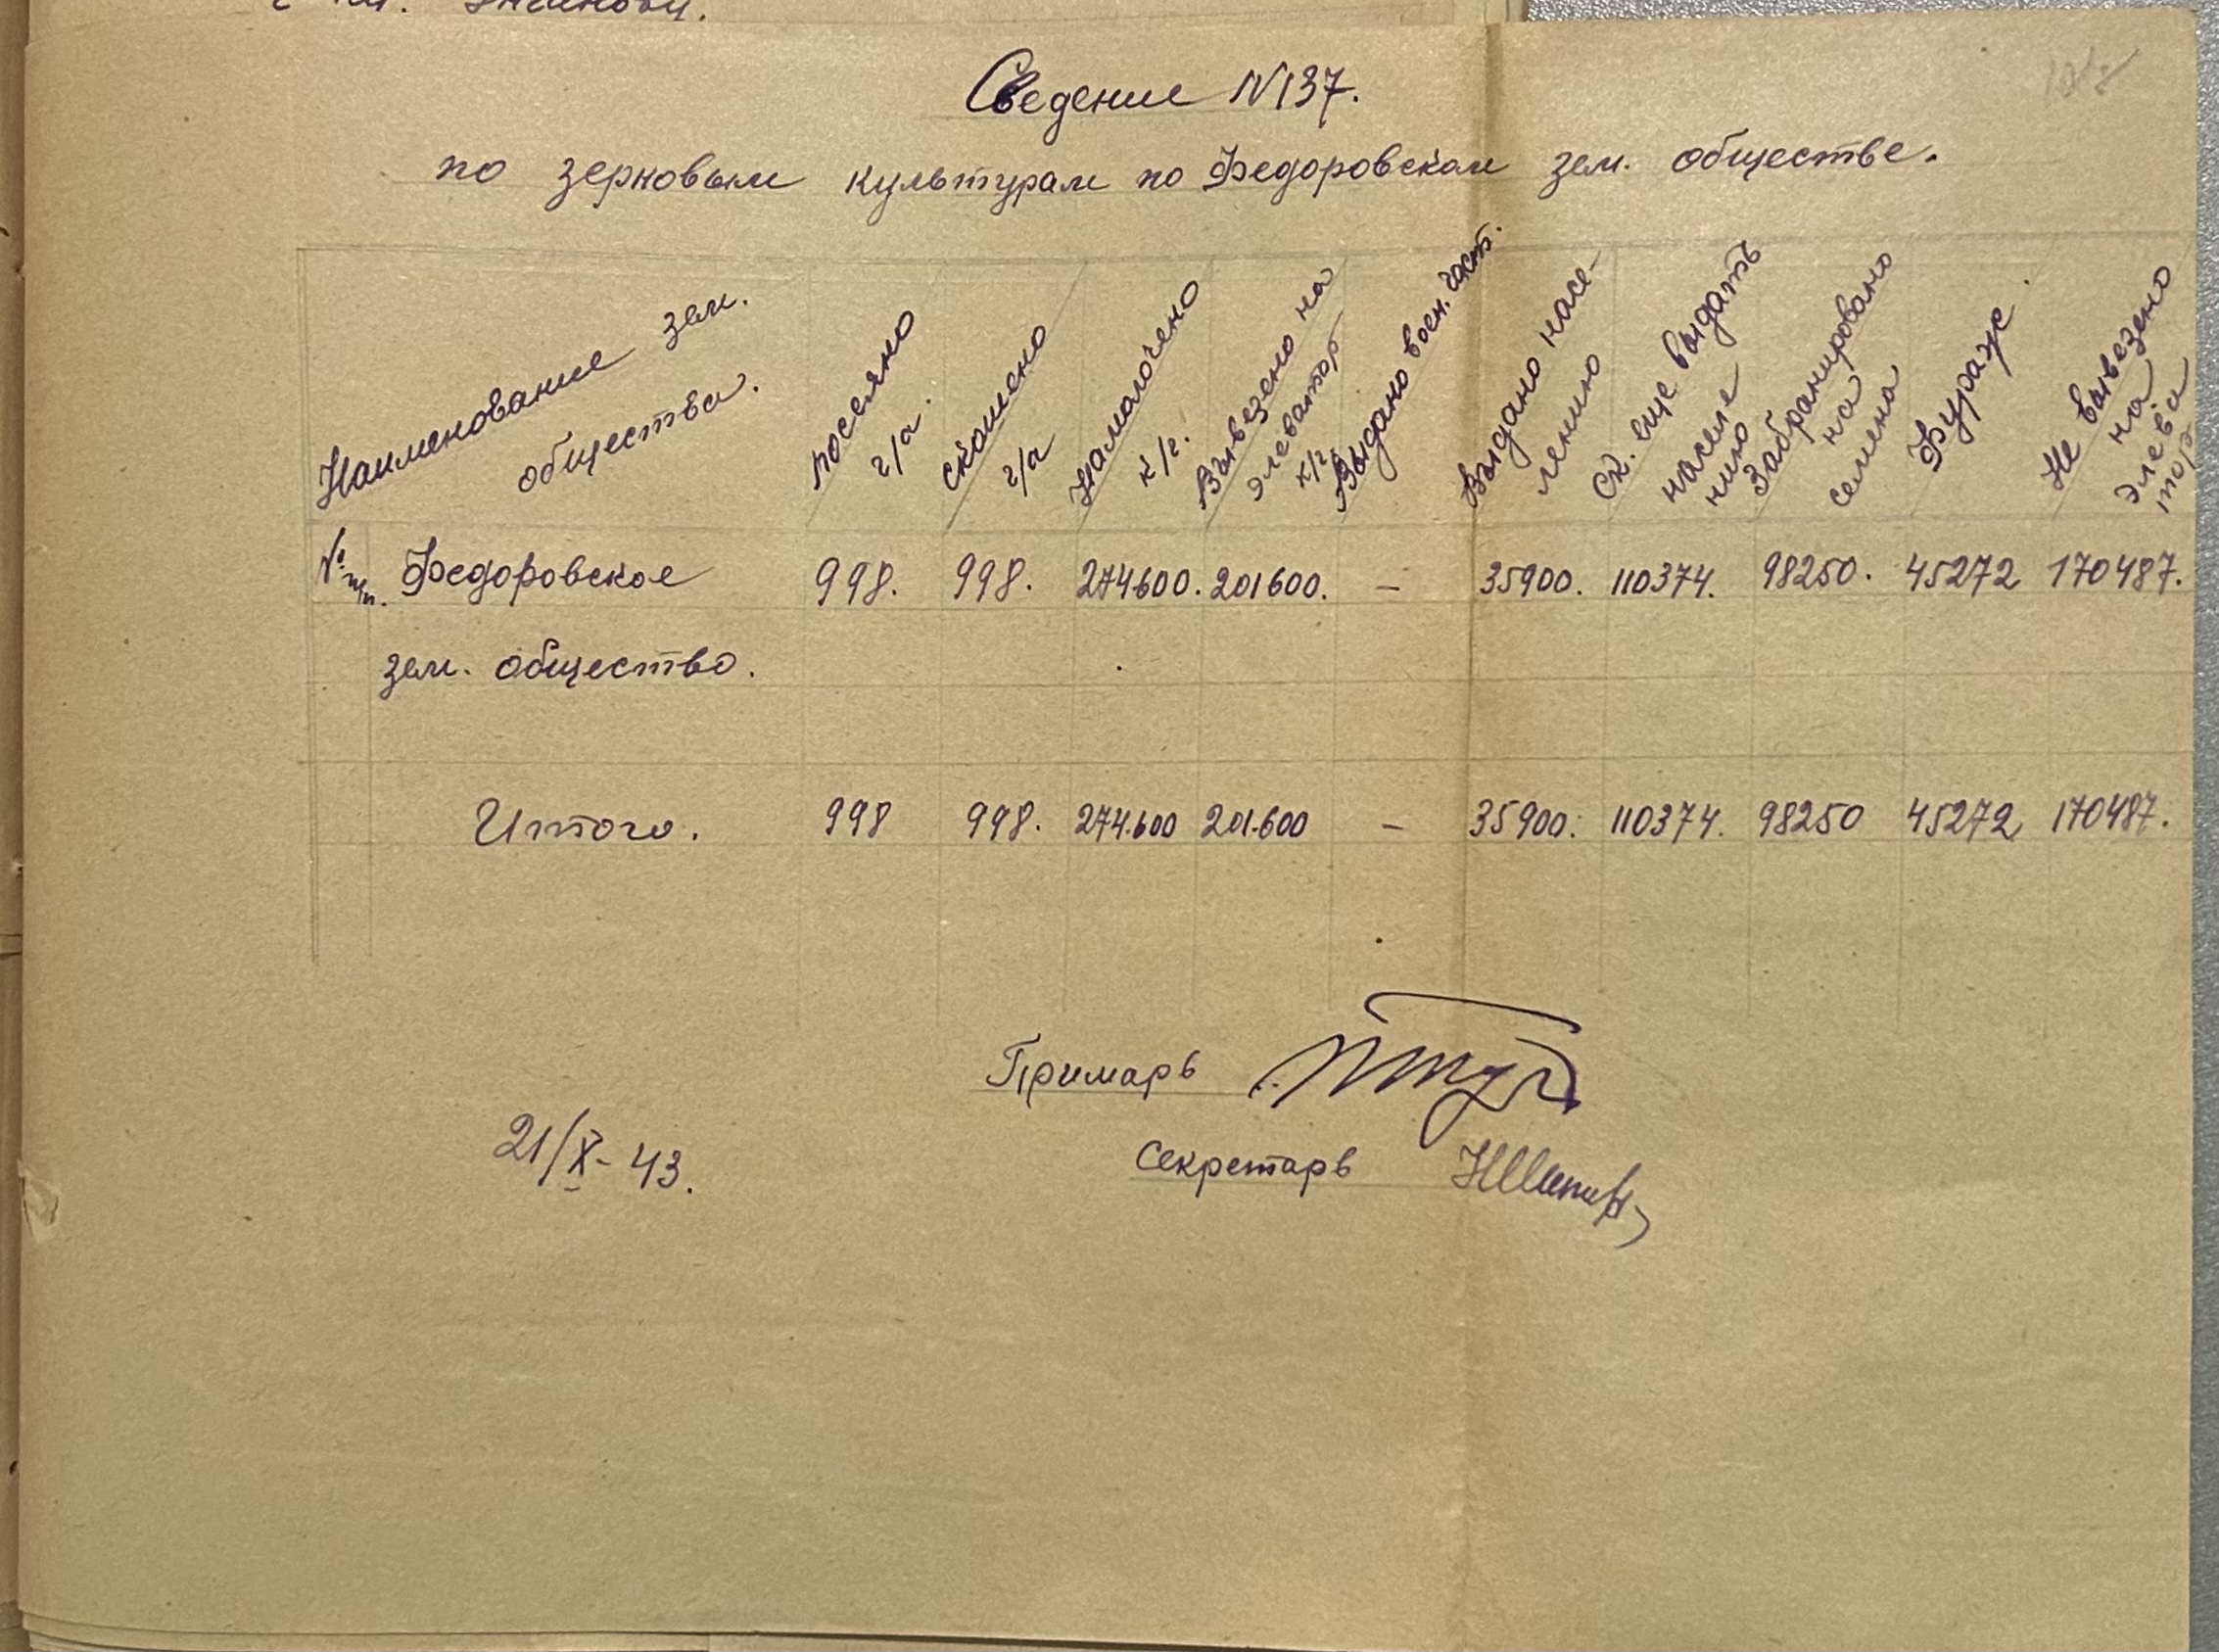 Сведение N137.
по зерновым культурам по Федоровском зем. обществе.
Наименование зем.
общества.
посеяно
г/а.
скошено
г/а
Намолочено
к/г.
Вывезено на
элеватор
к/г.
Выдано воен. част.
Выдано насе-
лению
Ск. еще выдать
населе
нию
Забранировано
на
семена
Фураж.
Не вывезено
на
элева
тор
№ п/п. Федоровское 998. 998. 274600. 201600. – 35900. 110374. 98250. 45272 170487.
зем. общество.
Итого. 998 998. 274.600 201.600 – 35900. 110374. 98250 45272 170487.
Примарь
21/X-43.
Секретарь